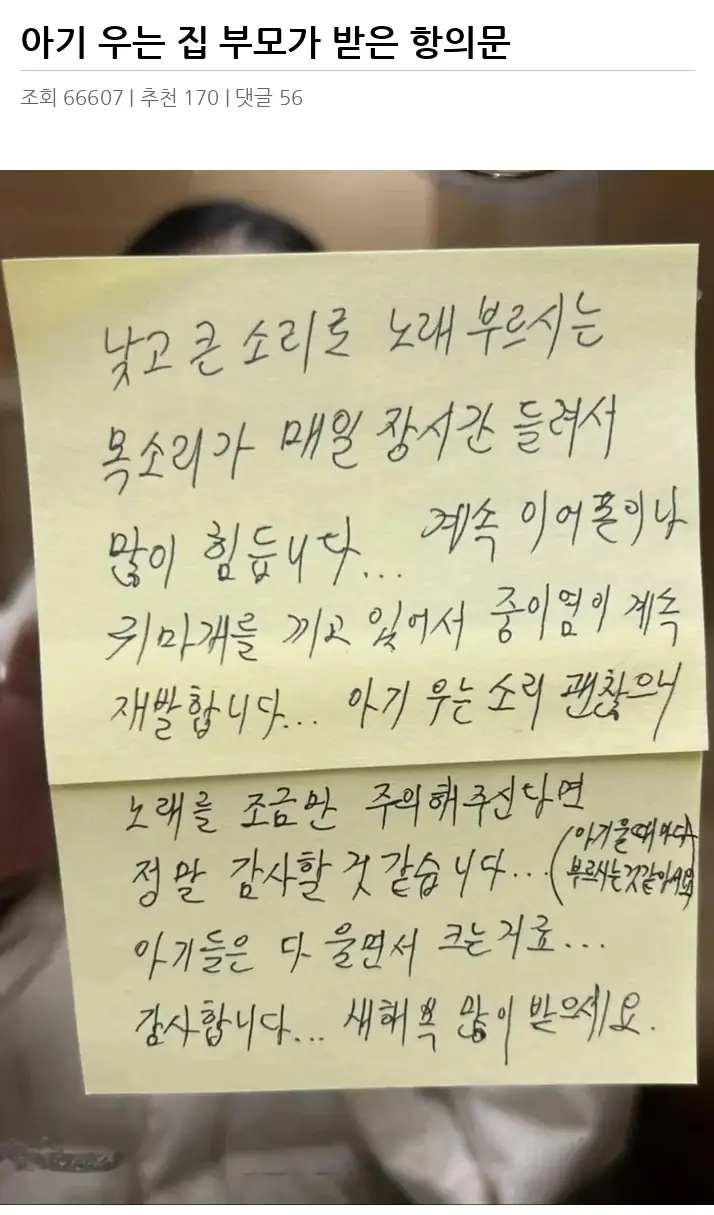 아기 우는 집 부모가 받은 항의문
조회 66607 | 추천 170 | 댓글 56
낮고 큰 소리로 노래 부르시는
목소리가 매일 장시간 들려서
많이 힘듭니다... 계속 이어폰이나
귀마개를 끼고 있어서 중이염이 계속
재발합니다... 아기 우는 소리 괜찮으니
노래를 조금만 주의해주신다면
정말 감사할 것 같습니다... (아기 울때마다
부르시는것같아서요)
아기들은 다 울면서 크는거죠...
감사합니다... 새해 복 많이 받으세요.